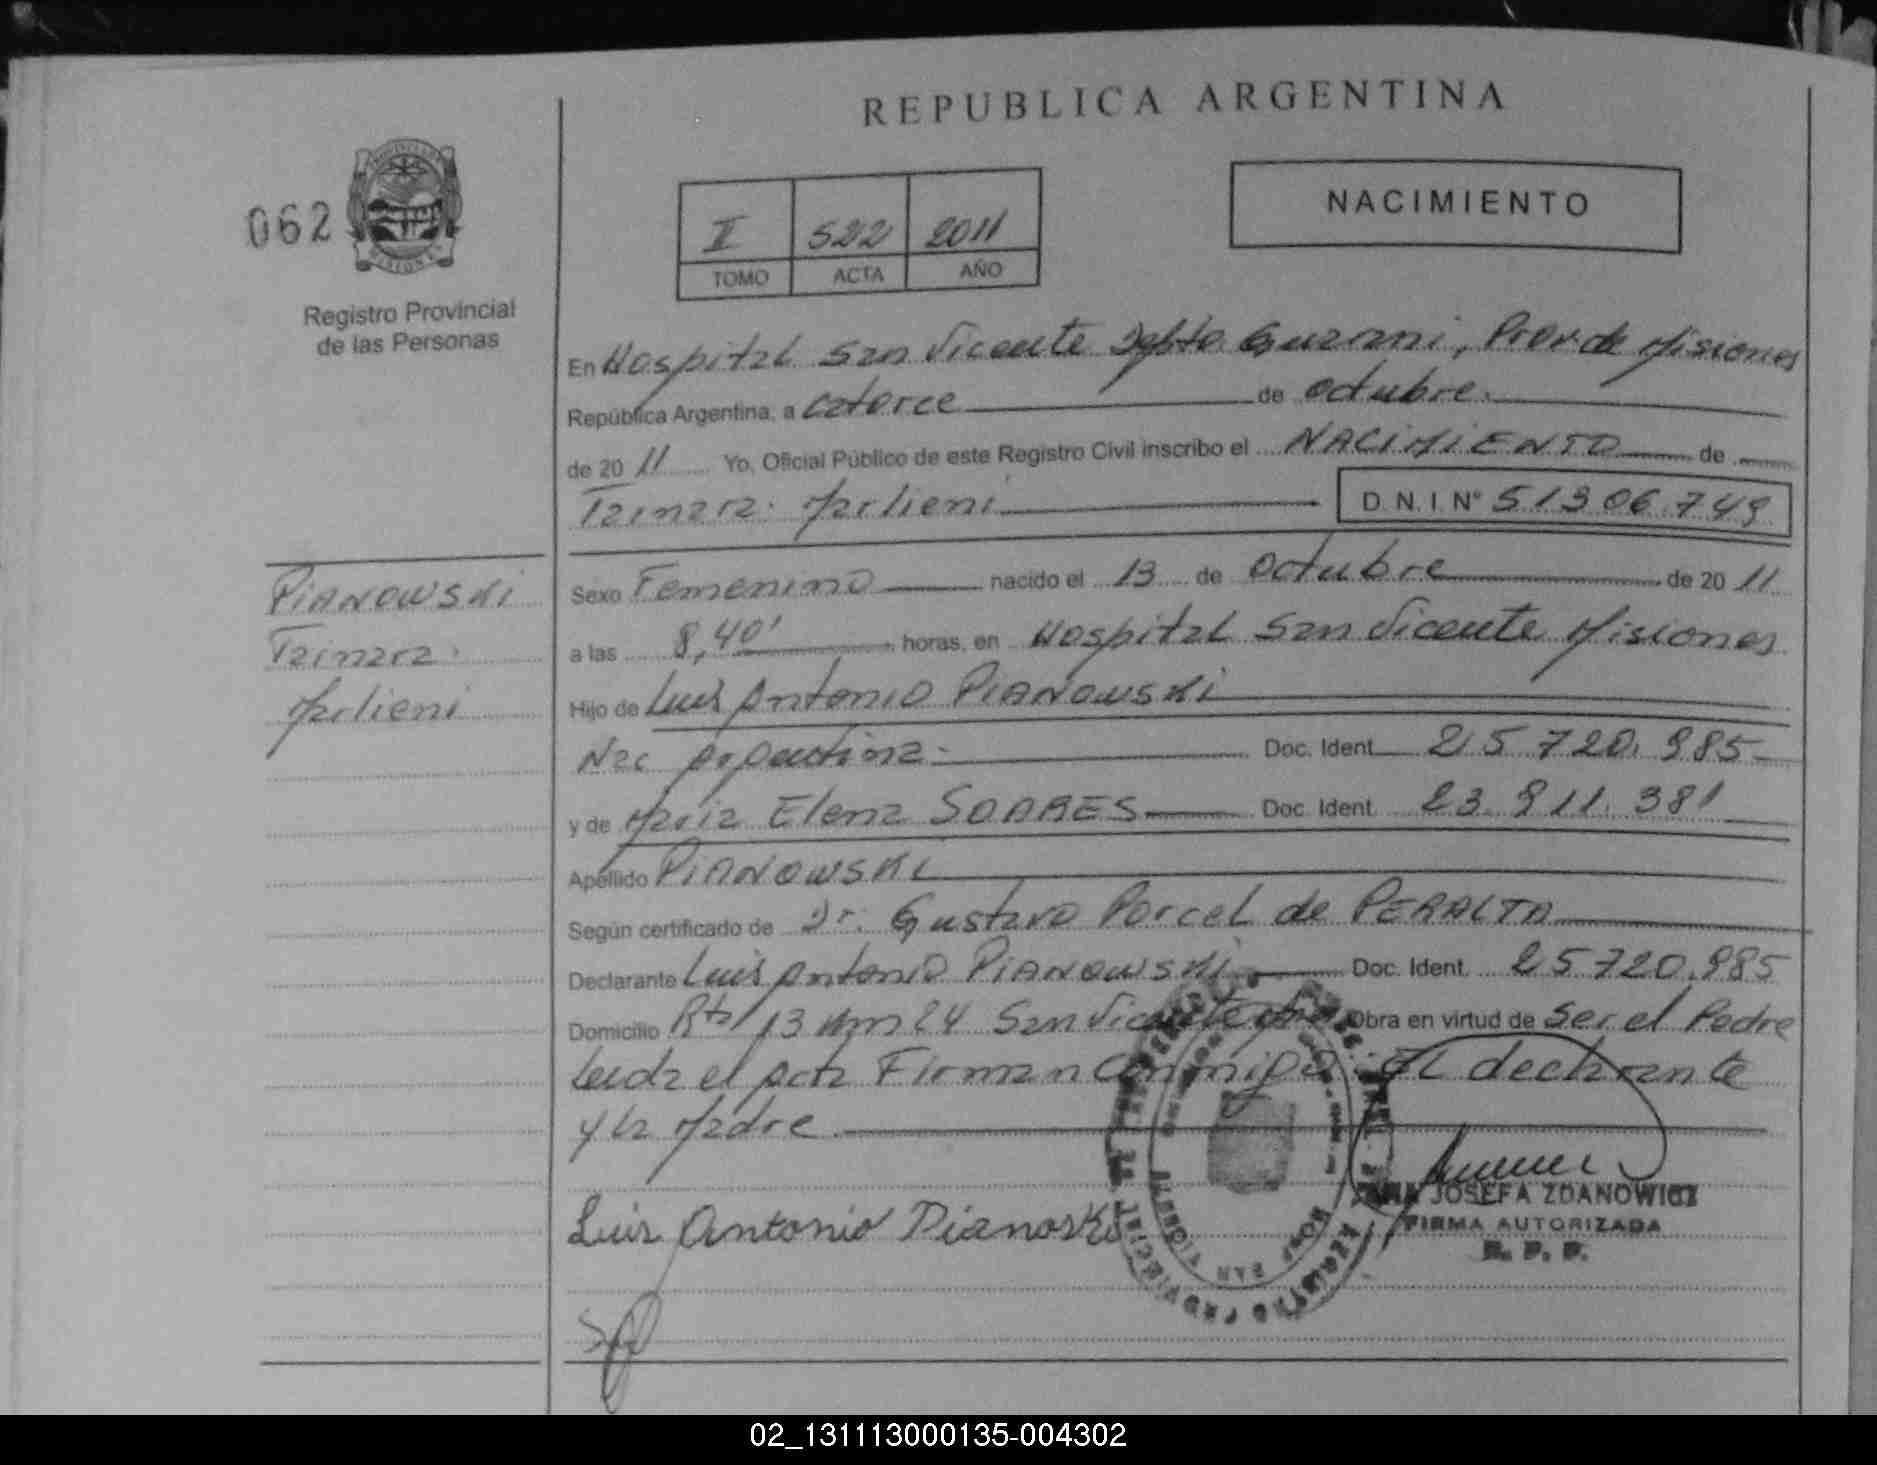 REPUBLICA ARGENTINA
NACIMIENTO
062
PROVINCIA DE MISIONES
Registro Provincial
de las Personas
II 522 2011
TOMO ACTA AÑO
En Hospital San Vicente Dpto Guarani, Prov de Misiones
República Argentina, a catorce de octubre.
de 20 11 Yo, Oficial Público de este Registro Civil inscribo el NACIMIENTO de
Tainara Marlieni D.N.I. Nº 51306.749
PIANOWSKI
Tainara
Marlieni
Sexo Femenino nacido el 13 de Octubre de 20 11
a las 8,40' horas, en Hospital San Vicente Misiones
Hijo de Luis Antonio PIANOWSKI
Nac Argentina Doc. Ident. 25.720.985
y de Maria Elena SOARES Doc. Ident. 23.911.381
Apellido PIANOWSKI
Según certificado de Dr. Gustavo Porcel de PERALTA
Declarante Luis Antonio PIANOWSKI Doc. Ident. 25720.985
Domicilio Rta 13 Km 24 San Vicente Obra en virtud de Ser el Padre
Leida el acta Firman Conmigo El declarante
y la Madre
JOSEFA ZDANOWICZ
FIRMA AUTORIZADA
R. P. P.
Luis Antonio Pianoski
02_131113000135-004302